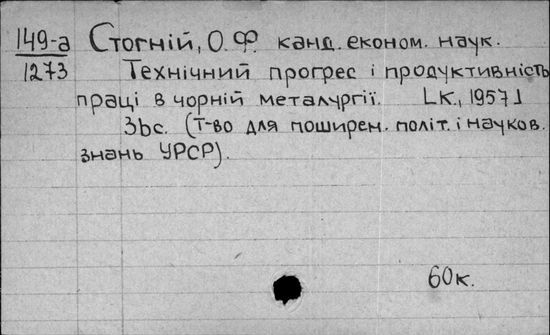 149-а Стогній, О.Ф. канд. економ. наук.
1273 Технічний прогрес і продуктивність
праці в чорній металургії. [К., 1957]
36с. (Т-во для поширен. політ. і науков.
знань УРСР).
60к.